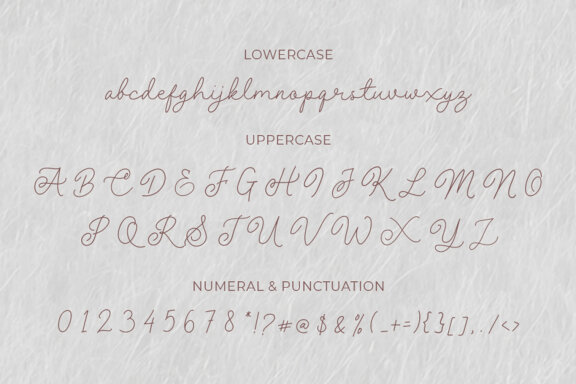 LOWERCASE
abcdefghijklmnopqrstuvwxyz
UPPERCASE
A B C D E F G H I J K L M N O
P Q R S T U V W X Y Z
NUMERAL & PUNCTUATION
0 1 2 3 4 5 6 7 8 *!?#@$&%(_+=){}[],./<>